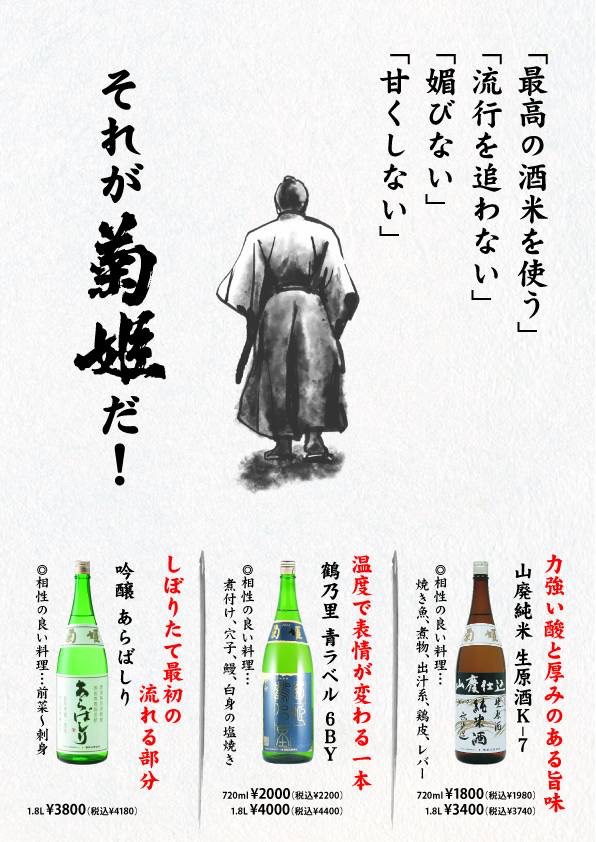 「最高の酒米を使う」
「流行を追わない」
「媚びない」
「甘くしない」
それが菊姫だ！
力強い酸と厚みのある旨味
山廃純米 生原酒K-7
◎相性の良い料理…
焼き魚、煮物、出汁系、鶏皮、レバー
菊姫
山廃仕込
純米酒
生原酒
720ml ¥1800(税込¥1980)
1.8L ¥3400(税込¥3740)
温度で表情が変わる一本
鶴乃里 青ラベル 6BY
◎相性の良い料理…
煮付け、穴子、鰻、白身の塩焼き
菊姫
鶴乃里
720ml ¥2000(税込¥2200)
1.8L ¥4000(税込¥4400)
しぼりたて最初の
流れる部分
吟醸 あらばしり
◎相性の良い料理…前菜〜刺身
菊姫
あらばしり
1.8L ¥3800(税込¥4180)